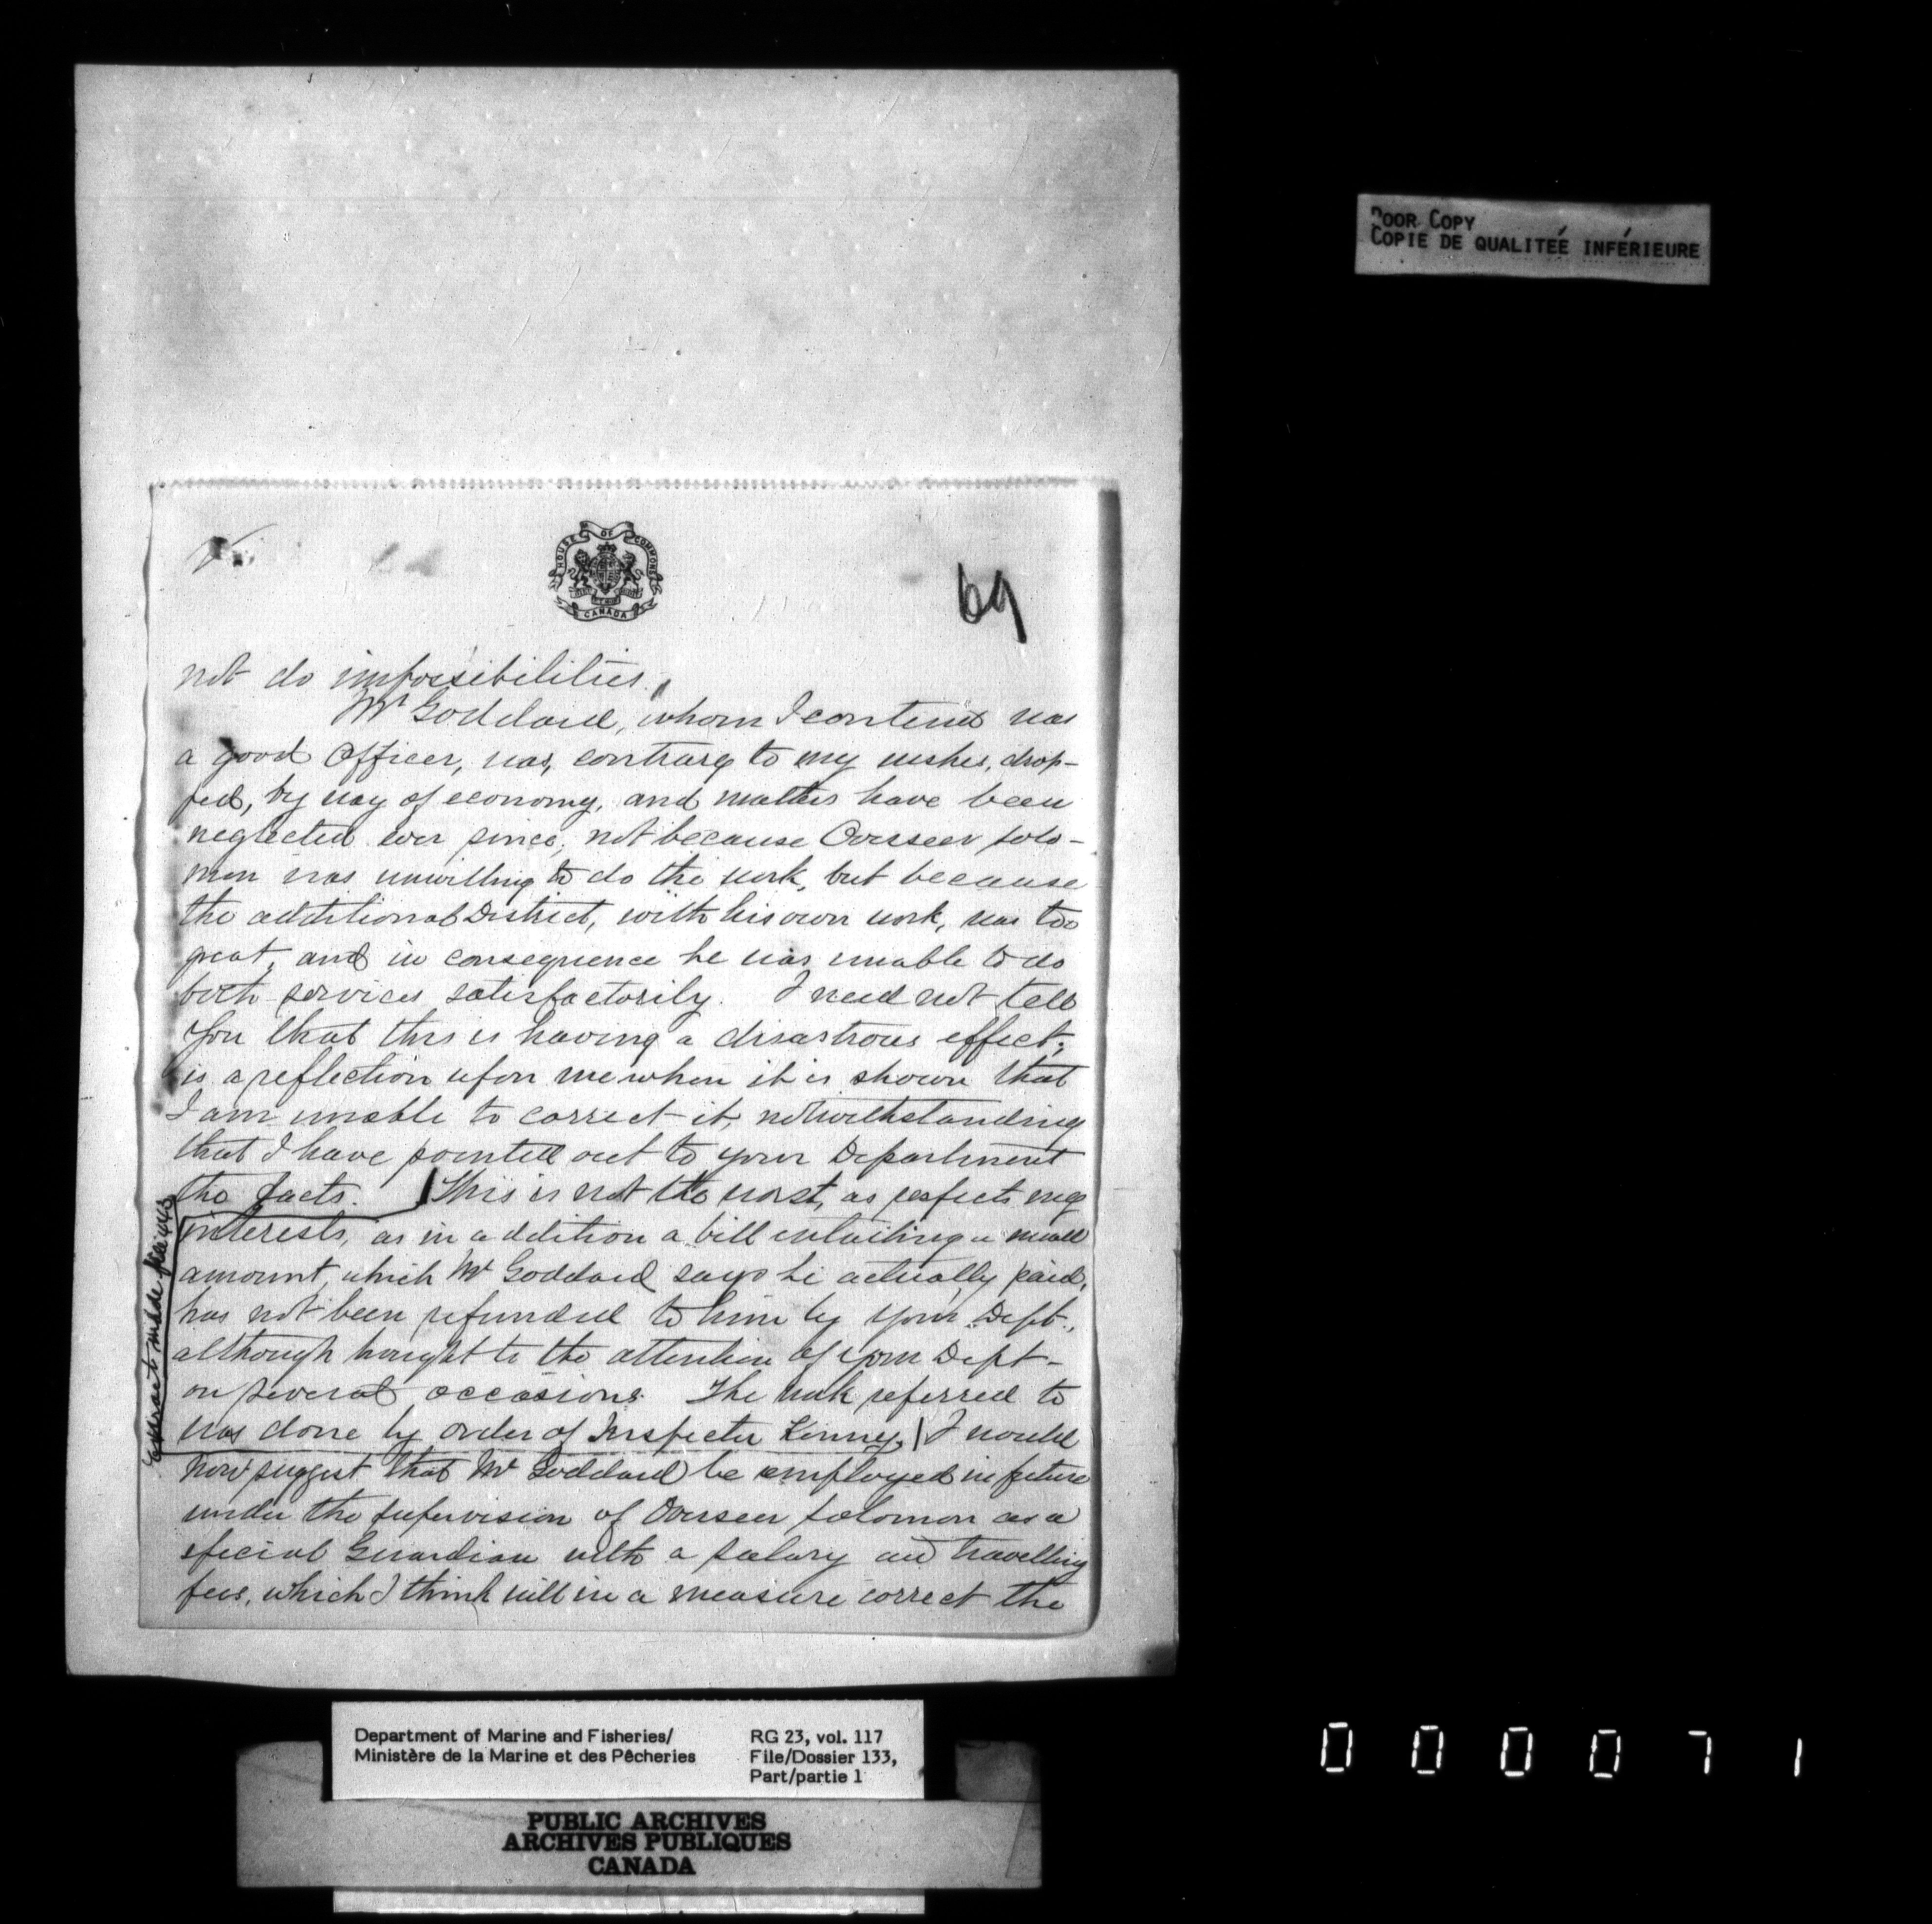 POOR COPY
COPIE DE QUALITEÉ INFÉRIEURE
HOUSE OF COMMONS
CANADA
69
not do impossibilities.
Mr Goddard, whom I contend was
a good Officer, was, contrary to my wishes, drop-
ped, by way of economy, and matters have been
neglected ever since, not because Overseer Solo-
mon was unwilling to do the work, but because
the additional District, with his own work, was too
great, and in consequence he was unable to do
both services satisfactorily. I need not tell
you that this is having a disastrous effect;
is a reflection upon me when it is shown that
I am unable to correct it, notwithstanding
that I have pointed out to your Department
the facts. This is not the worst, as respects my
interests, as in addition a bill entailing a small
amount, which Mr Goddard says he actually paid,
has not been refunded to him by your Dept.,
although brought to the attention of your Dept-
on several occasions. The work referred to
was done by order of Inspector Kinney. | I would
now suggest that Mr Goddard be employed in future
under the supervision of Overseer Solomon as a
special Guardian with a salary and travelling
fees, which I think will in a measure correct the
Extract made
Department of Marine and Fisheries/
Ministère de la Marine et des Pêcheries
RG 23, vol. 117
File/Dossier 133,
Part/partie 1
PUBLIC ARCHIVES
ARCHIVES PUBLIQUES
CANADA
000071